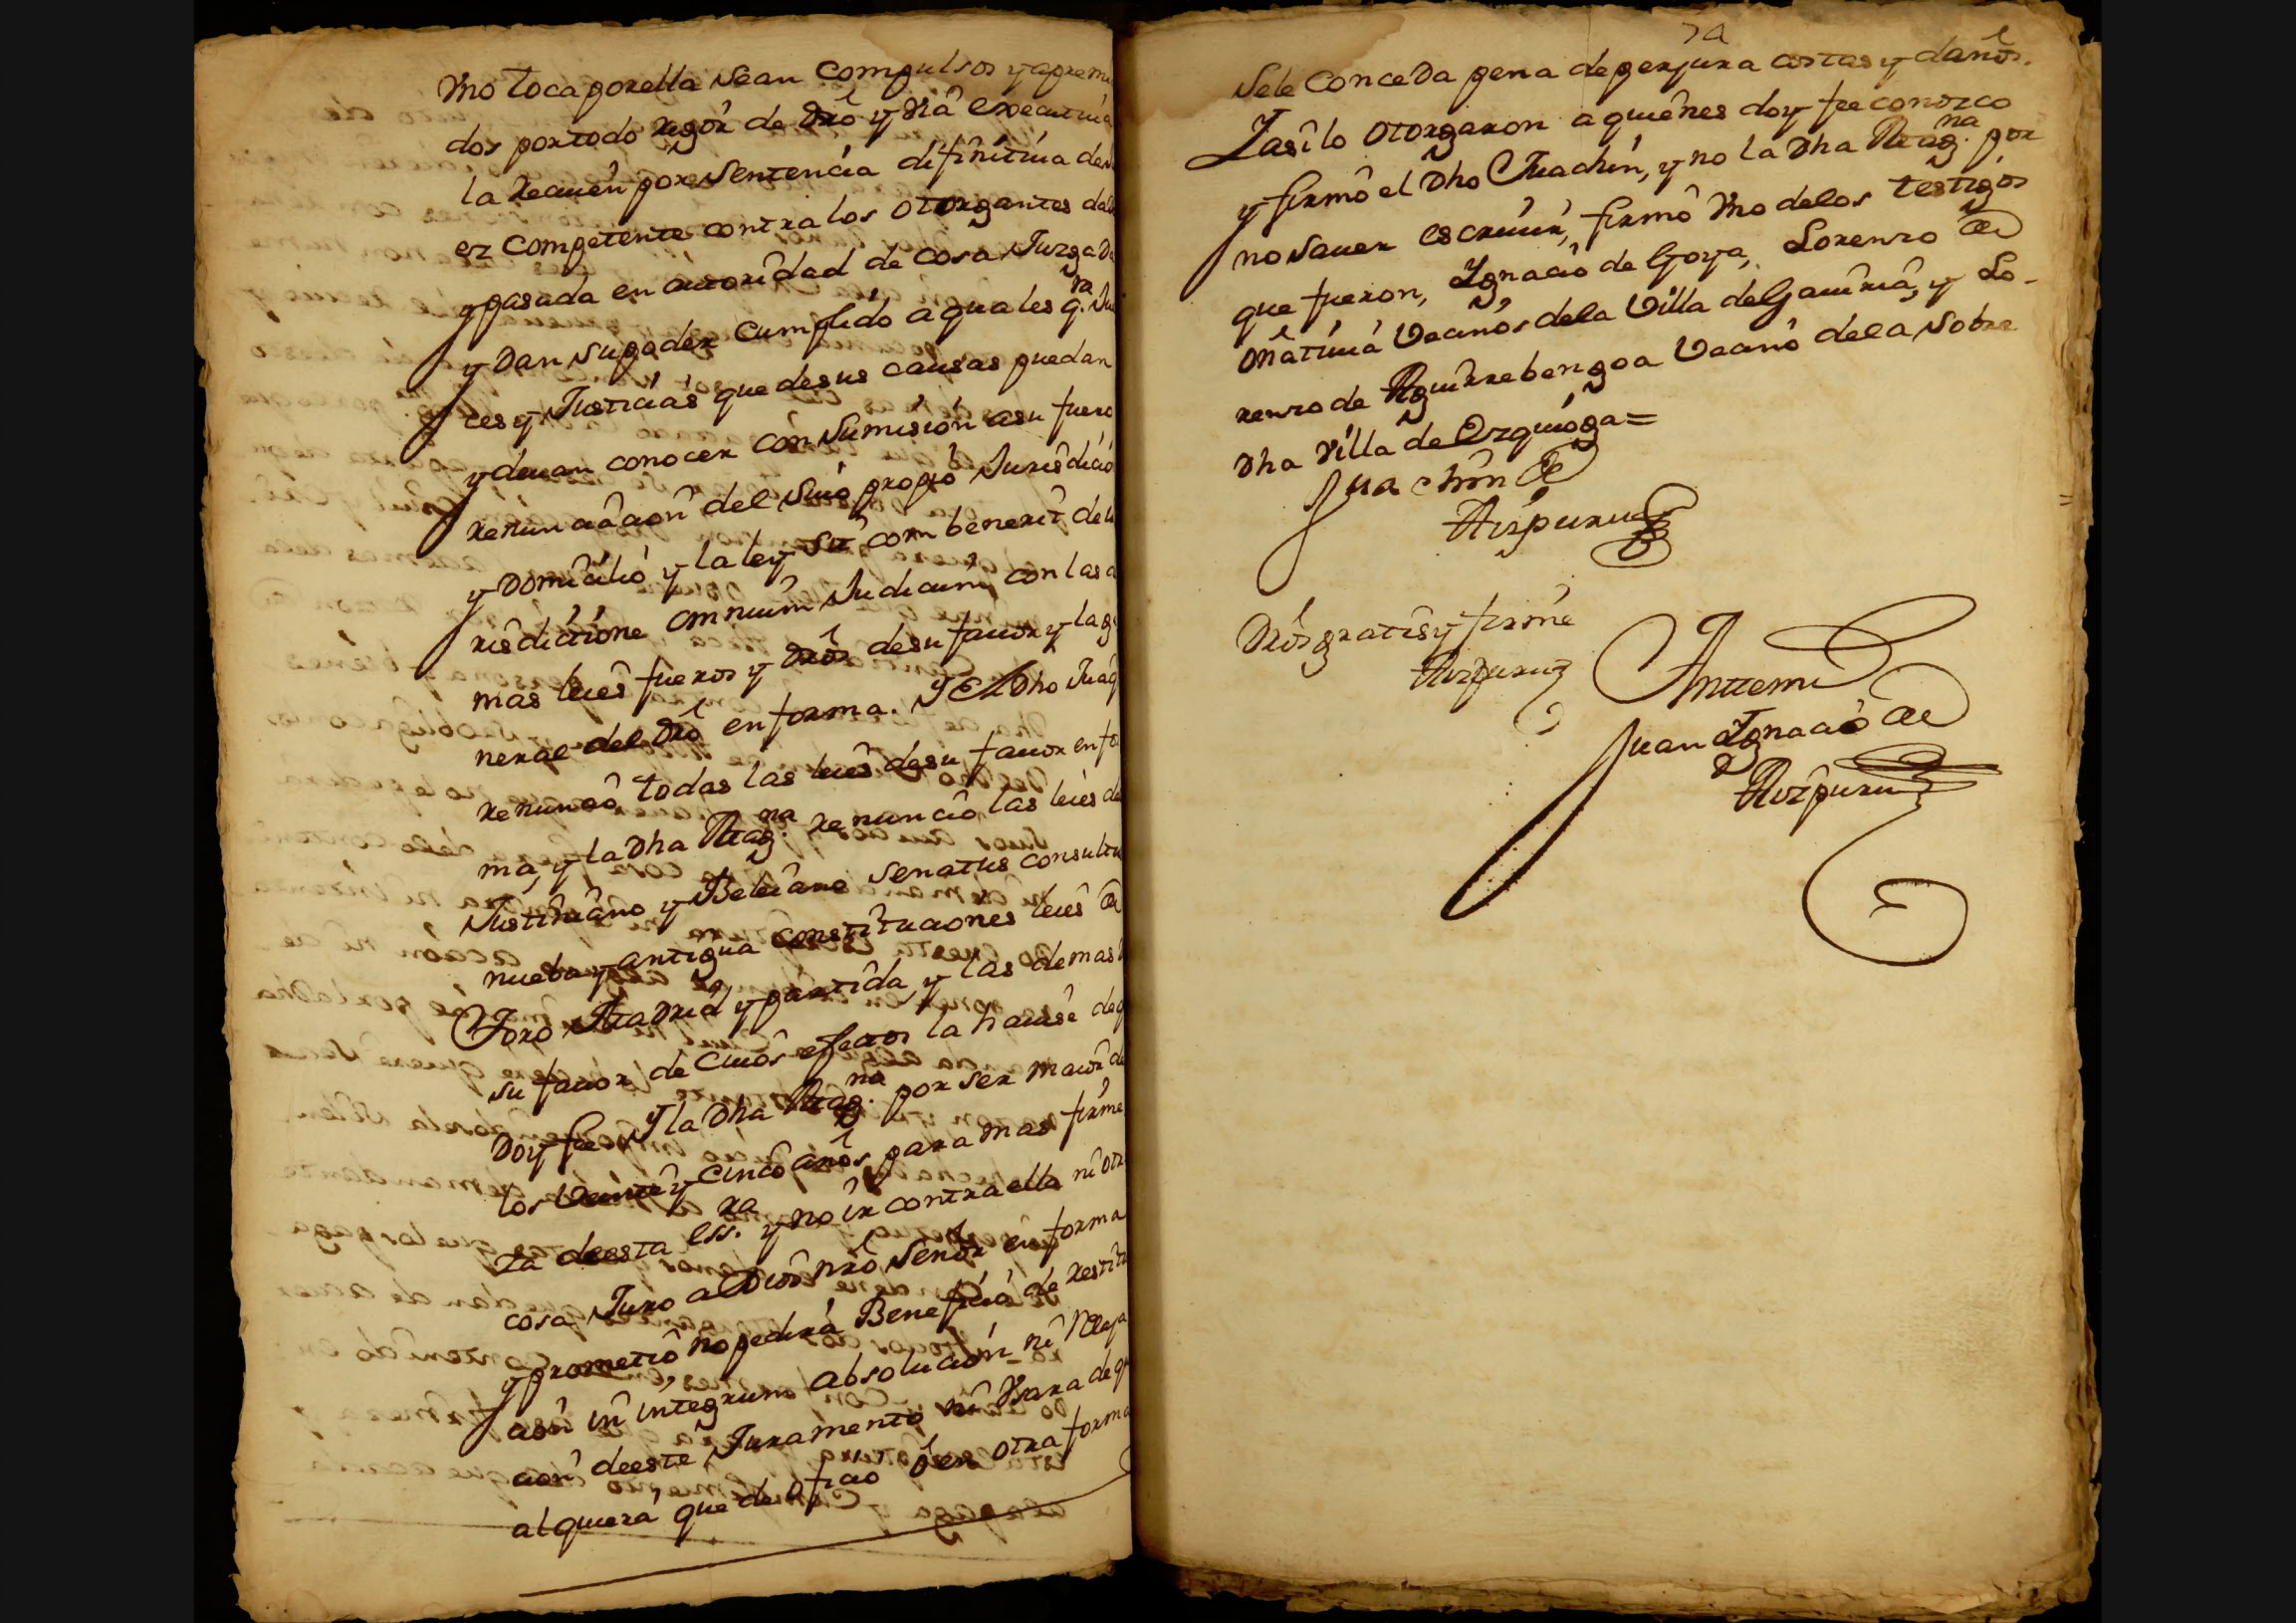 Vno toca por ella sean compulsos y apremia
dos por todo rigor de dro y via executiua
la reciuen por sentencia difinitiua de Ju
ez competente contra los otorgantes dada
y pasada en autoridad de cosa Juzgada
y Dan su poder cumplido a quales q.ra Jue
ces y Justicias que de sus causas puedan
y deuan conocer con sumision a su fuero
renunciacion del suio propio Jurisdicio
y Domicilio y la ley sit com benerit de Ju
risdictione omnium Judicum con las de
mas leies fueros y dros de su fauor y la ge
neral del Dro en forma. Y El Dho Juaq
renuncio todas las leies de su fauor en for
ma, y la Dha Mag.na renuncio las leies de
Justiniano y Beleiano senatus consultus
nueba y antigua constituciones leies de
Toro Madrid y partida, y las demas de
su fauor de cuios efectos la hauise de q
Doy fee Y la Dha Mag.na por ser maior de
los Veinte y cinco años para mas firme
za de esta ess.ra y no ir contra ella ni otra
cosa Juro a Dios nro Señor en forma
y prometio no pedira Beneficio de restitu
cion in integrum absolucion ni Relaja
cion de este Juramento ni Vsara de qu
alquiera que de oficio o en otra forma
se le conceda pena de perjura costas y daños.
Y asi lo otorgaron a quienes doy fee conozco
y firmo el Dho Juachin, y no la Dha Mag.na por
no sauer escriuir, firmo Vno de los testigos
que fueron, Ignacio de Goya, Lorenzo de
Oñatiuia Vecinos de la Villa de Gauiria, y Lo-
renzo de Aguirrebengoa Vecino de la sobre
Dha Villa de Ezquioga=
Juachin de
Aizpuru
Dros gratis y firme
Aizpuru
Anttemi
Juan Ignacio de
Aizpuru